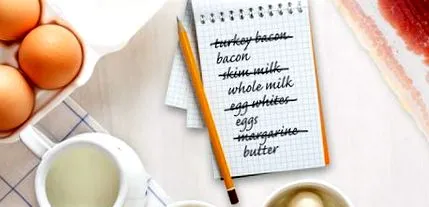 turkey bacon
bacon
skim milk
whole milk
egg whites
eggs
margarine
butter